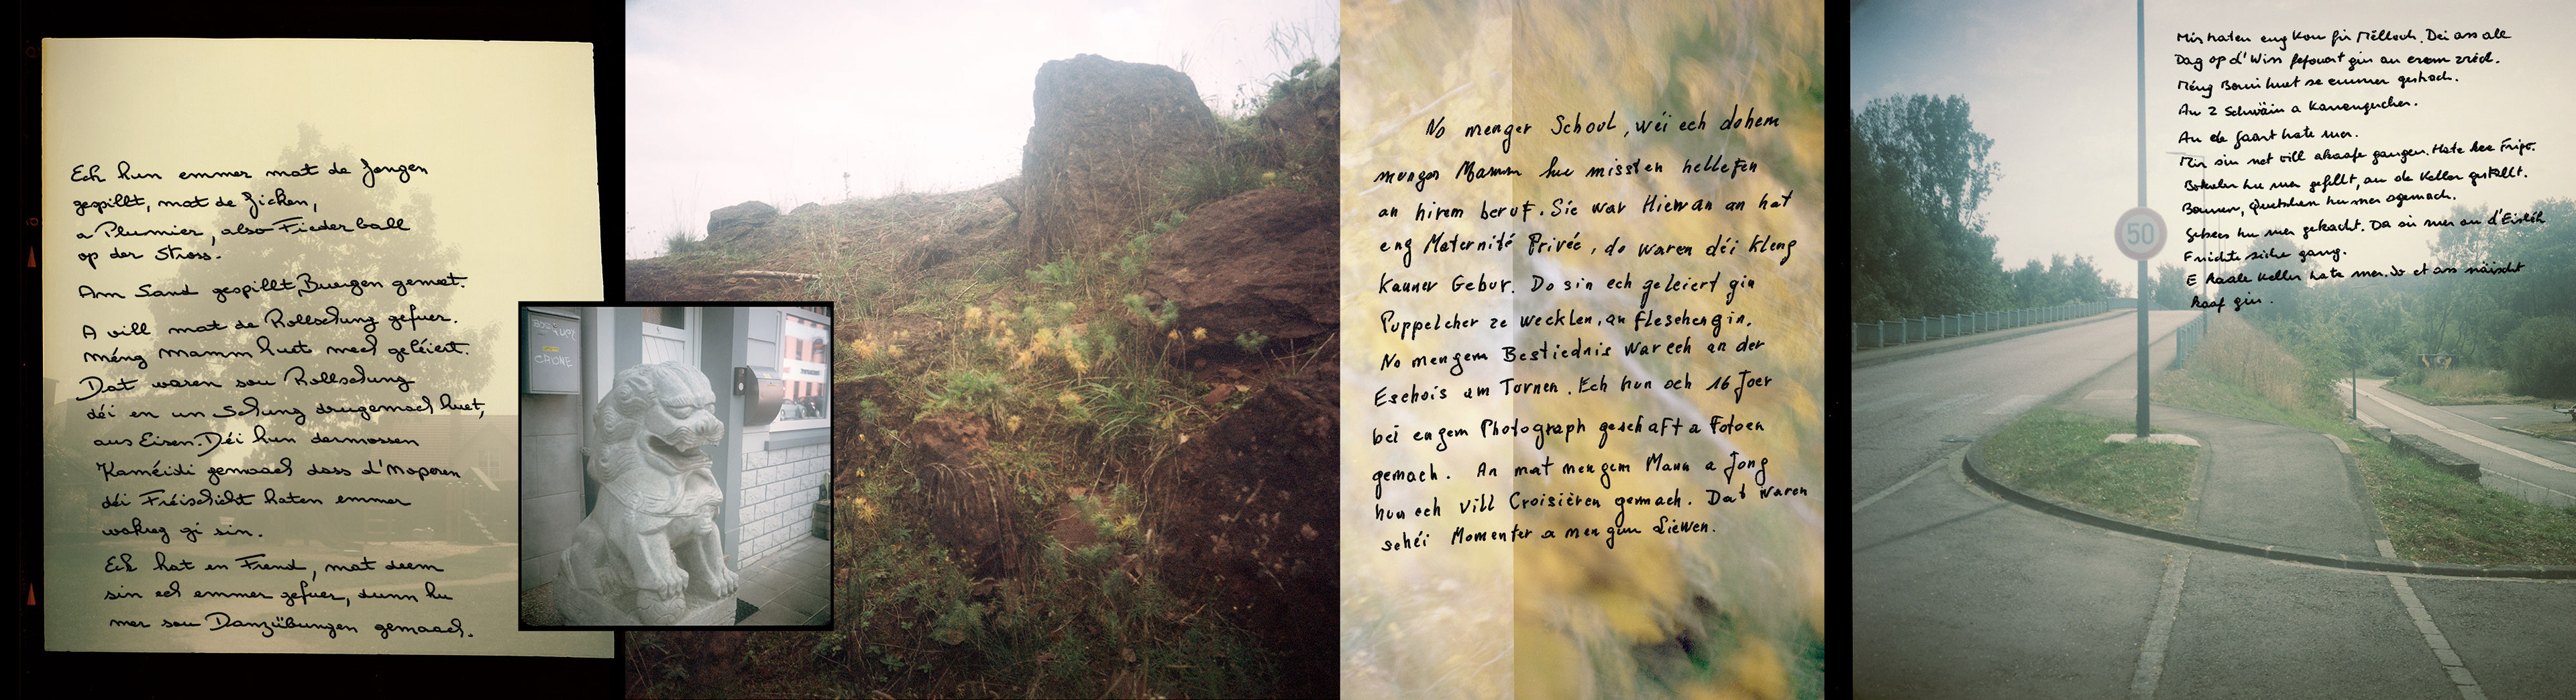 Ech hun emmer mat de Jongen
gespillt, mat de Jicken,
a Plumier, also Fiederball
op der Strooss.
Am Sand gespillt, Buergen gemeet.
A vill mat de Rollschung gefuer.
Méng Mamm huet mech geléiert.
Dat waren sou Rollschung
déi en un Schung drugemach huet,
aus Eisen. Déi hun dermossen
Kaméidi gemaach dass d'Noperen
déi Fréischicht haten emmer
wakreg gi sin.
Ech hat en Frend, mat deem
sin ech emmer gefuer, dunn hu
mer sou Danzübungen gemaach.
CRONE
No menger Schoul, wéi ech dohem
menger Mamm hu missten hellefen
an hirem beruf. Sie war Hiewan an hat
eng Maternité Privée, do waren déi kleng
Kanner Gebur. Do sin ech geleiert gin
Puppelcher ze wecklen, an fleschen gin.
No mengem Bestiednis war ech an der
Eschois am Tornen. Ech hun och 16 Joer
bei engem Photograph geschafft a Fotoen
gemach. An mat mengem Mann a Jong
hun ech vill Croisièren gemach. Dat waren
schéi Momenter a mengem Liewen.
Mir haten eng Kou fir Mëllech. Dei ass all
Dag op d'Wiss gefouert gin an erem zréck.
Méng Bomi huet se emmer gestrach.
An 2 Schwäin a Kanengercher.
An de Gaart hate mer.
Mir sin net vill akaafe gangen. Hate kee Frigo.
Bokaler hu mer gefëllt, an de Keller gestallt.
Bounen, Quetschen hu mer agemach.
Gebees hu mer gekacht. Da si mer an d'Eisléck
Friichte siche gang.
E kaale Keller hate mer. Do et ass näischt
kaaf gin.
50